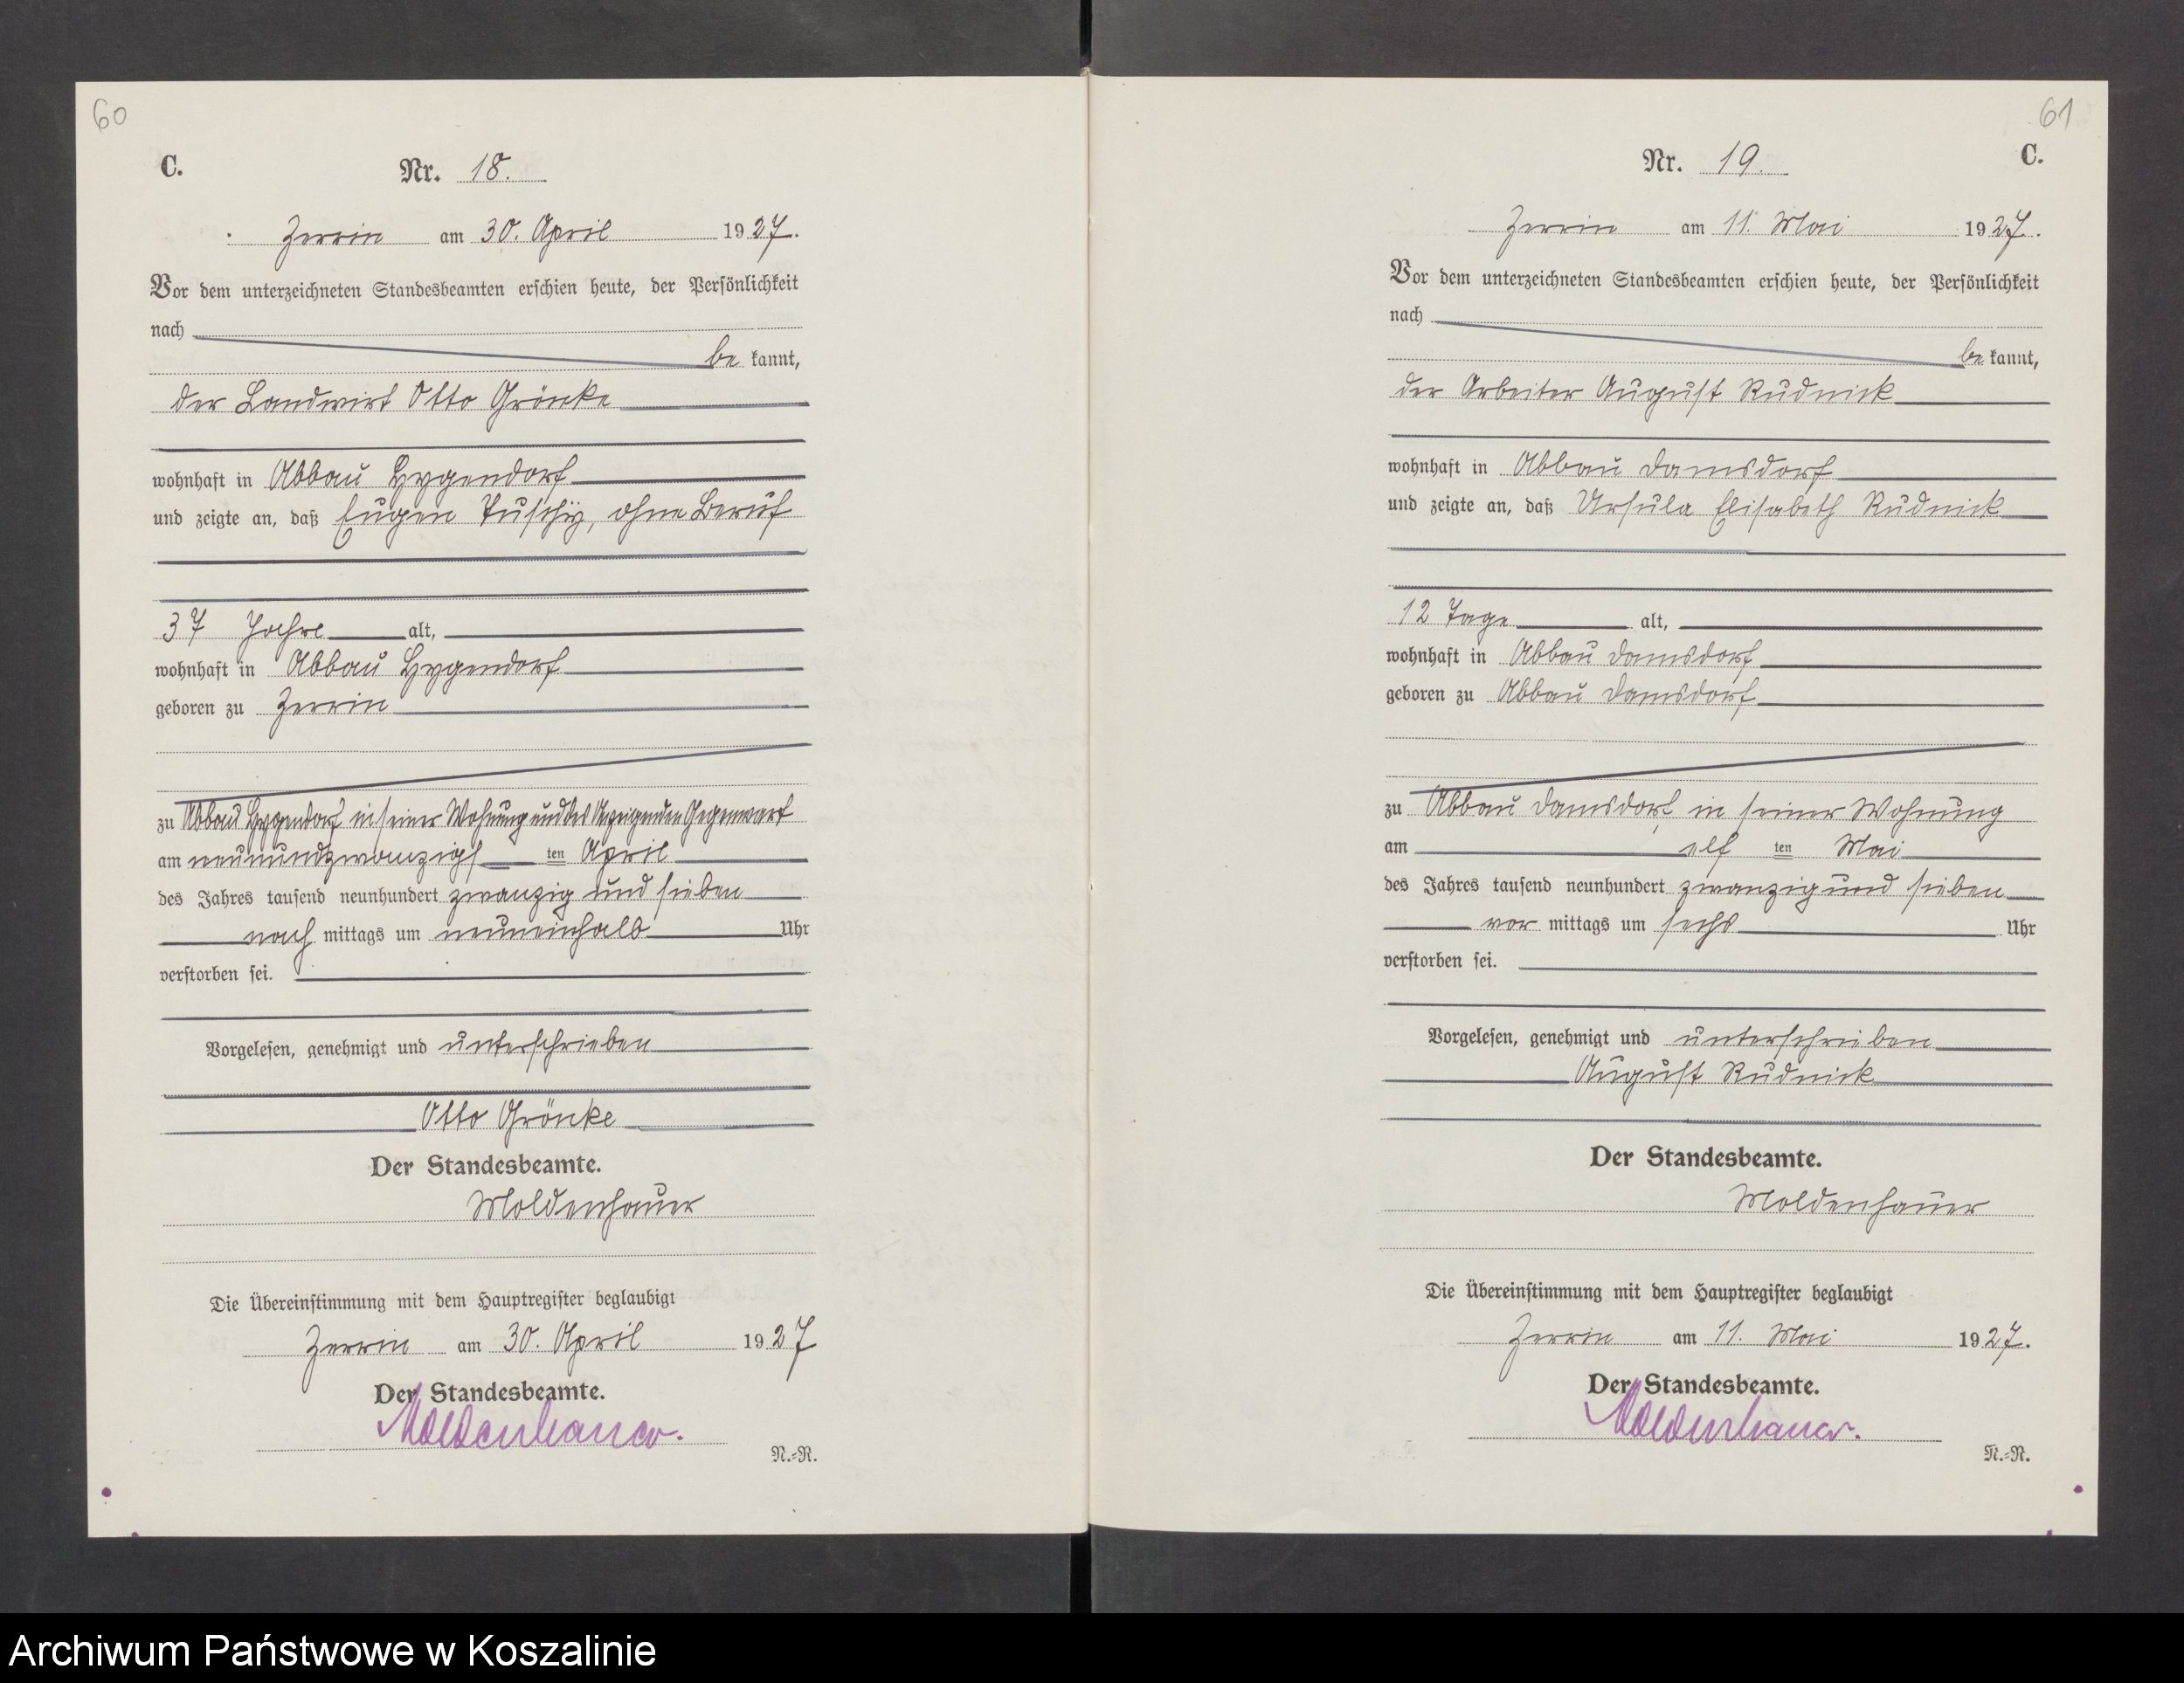 60
C.
Nr. 18.
Zerrin am 30. April 1927.
Vor dem unterzeichneten Standesbeamten erschien heute, der Persönlichkeit
nach
be kannt,
der Landwirt Otto Grönke
wohnhaft in Abbau Hygendorf
und zeigte an, daß Eugen Tuschy, ohne Beruf
37 Jahre alt,
wohnhaft in Abbau Hygendorf
geboren zu Zerrin
zu Abbau Hygendorf in seiner Wohnung und des Anzeigenden Gegenwart
am neunundzwanzigs ten April
des Jahres tausend neunhundert zwanzig und sieben
nach mittags um neuneinhalb Uhr
verstorben sei.
Vorgelesen, genehmigt und unterschrieben
Otto Grönke
Der Standesbeamte.
Moldenhauer
Die Übereinstimmung mit dem Hauptregister beglaubigt
Zerrin am 30. April 1927
Der Standesbeamte.
Moldenhauer.
N.-R.
61
C.
Nr. 19.
Zerrin am 11. Mai 1927.
Vor dem unterzeichneten Standesbeamten erschien heute, der Persönlichkeit
nach
be kannt,
der Arbeiter August Rudnick
wohnhaft in Abbau Damsdorf
und zeigte an, daß Ursula Elisabeth Rudnick
12 Tage alt,
wohnhaft in Abbau Damsdorf
geboren zu Abbau Damsdorf
zu Abbau Damsdorf, in seiner Wohnung
am elf ten Mai
des Jahres tausend neunhundert zwanzig und sieben
vor mittags um sechs Uhr
verstorben sei.
Vorgelesen, genehmigt und unterschrieben
August Rudnick
Der Standesbeamte.
Moldenhauer
Die Übereinstimmung mit dem Hauptregister beglaubigt
Zerrin am 11. Mai 1927.
Der Standesbeamte.
Moldenhauer.
N.-R.
Archiwum Państwowe w Koszalinie